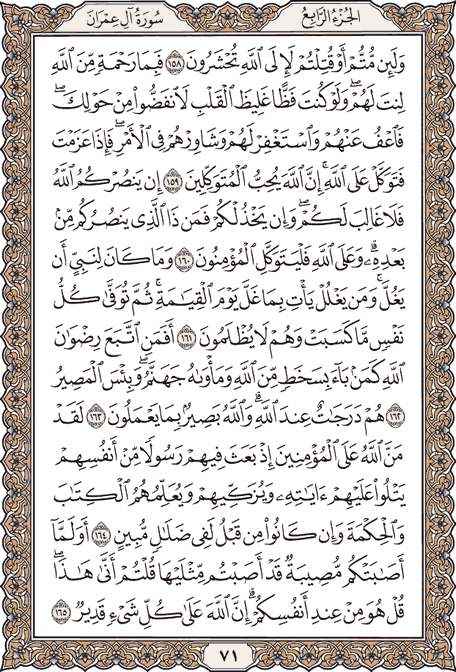 سُورَةُ آلِ عِمْرَانَ
الجُزْءُ الرَّابِعُ
وَلَئِن مُّتُّمْ أَوْ قُتِلْتُمْ لَإِلَى ٱللَّهِ تُحْشَرُونَ ١٥٨ فَبِمَا رَحْمَةٍ مِّنَ ٱللَّهِ
لِنتَ لَهُمْ ۖ وَلَوْ كُنتَ فَظًّا غَلِيظَ ٱلْقَلْبِ لَٱنفَضُّوا۟ مِنْ حَوْلِكَ ۖ
فَٱعْفُ عَنْهُمْ وَٱسْتَغْفِرْ لَهُمْ وَشَاوِرْهُمْ فِى ٱلْأَمْرِ ۖ فَإِذَا عَزَمْتَ
فَتَوَكَّلْ عَلَى ٱللَّهِ ۚ إِنَّ ٱللَّهَ يُحِبُّ ٱلْمُتَوَكِّلِينَ ١٥٩ إِن يَنصُرْكُمُ ٱللَّهُ
فَلَا غَالِبَ لَكُمْ ۖ وَإِن يَخْذُلْكُمْ فَمَن ذَا ٱلَّذِى يَنصُرُكُم مِّنۢ
بَعْدِهِۦ ۗ وَعَلَى ٱللَّهِ فَلْيَتَوَكَّلِ ٱلْمُؤْمِنُونَ ١٦٠ وَمَا كَانَ لِنَبِىٍّ أَن
يَغُلَّ ۚ وَمَن يَغْلُلْ يَأْتِ بِمَا غَلَّ يَوْمَ ٱلْقِيَٰمَةِ ۚ ثُمَّ تُوَفَّىٰ كُلُّ
نَفْسٍ مَّا كَسَبَتْ وَهُمْ لَا يُظْلَمُونَ ١٦١ أَفَمَنِ ٱتَّبَعَ رِضْوَٰنَ
ٱللَّهِ كَمَنۢ بَآءَ بِسَخَطٍ مِّنَ ٱللَّهِ وَمَأْوَىٰهُ جَهَنَّمُ ۚ وَبِئْسَ ٱلْمَصِيرُ
١٦٢ هُمْ دَرَجَٰتٌ عِندَ ٱللَّهِ ۗ وَٱللَّهُ بَصِيرٌۢ بِمَا يَعْمَلُونَ ١٦٣ لَقَدْ
مَنَّ ٱللَّهُ عَلَى ٱلْمُؤْمِنِينَ إِذْ بَعَثَ فِيهِمْ رَسُولًا مِّنْ أَنفُسِهِمْ
يَتْلُوا۟ عَلَيْهِمْ ءَايَٰتِهِۦ وَيُزَكِّيهِمْ وَيُعَلِّمُهُمُ ٱلْكِتَٰبَ
وَٱلْحِكْمَةَ وَإِن كَانُوا۟ مِن قَبْلُ لَفِى ضَلَٰلٍ مُّبِينٍ ١٦٤ أَوَلَمَّآ
أَصَٰبَتْكُم مُّصِيبَةٌ قَدْ أَصَبْتُم مِّثْلَيْهَا قُلْتُمْ أَنَّىٰ هَٰذَا ۖ
قُلْ هُوَ مِنْ عِندِ أَنفُسِكُمْ ۗ إِنَّ ٱللَّهَ عَلَىٰ كُلِّ شَىْءٍ قَدِيرٌ ١٦٥
٧١